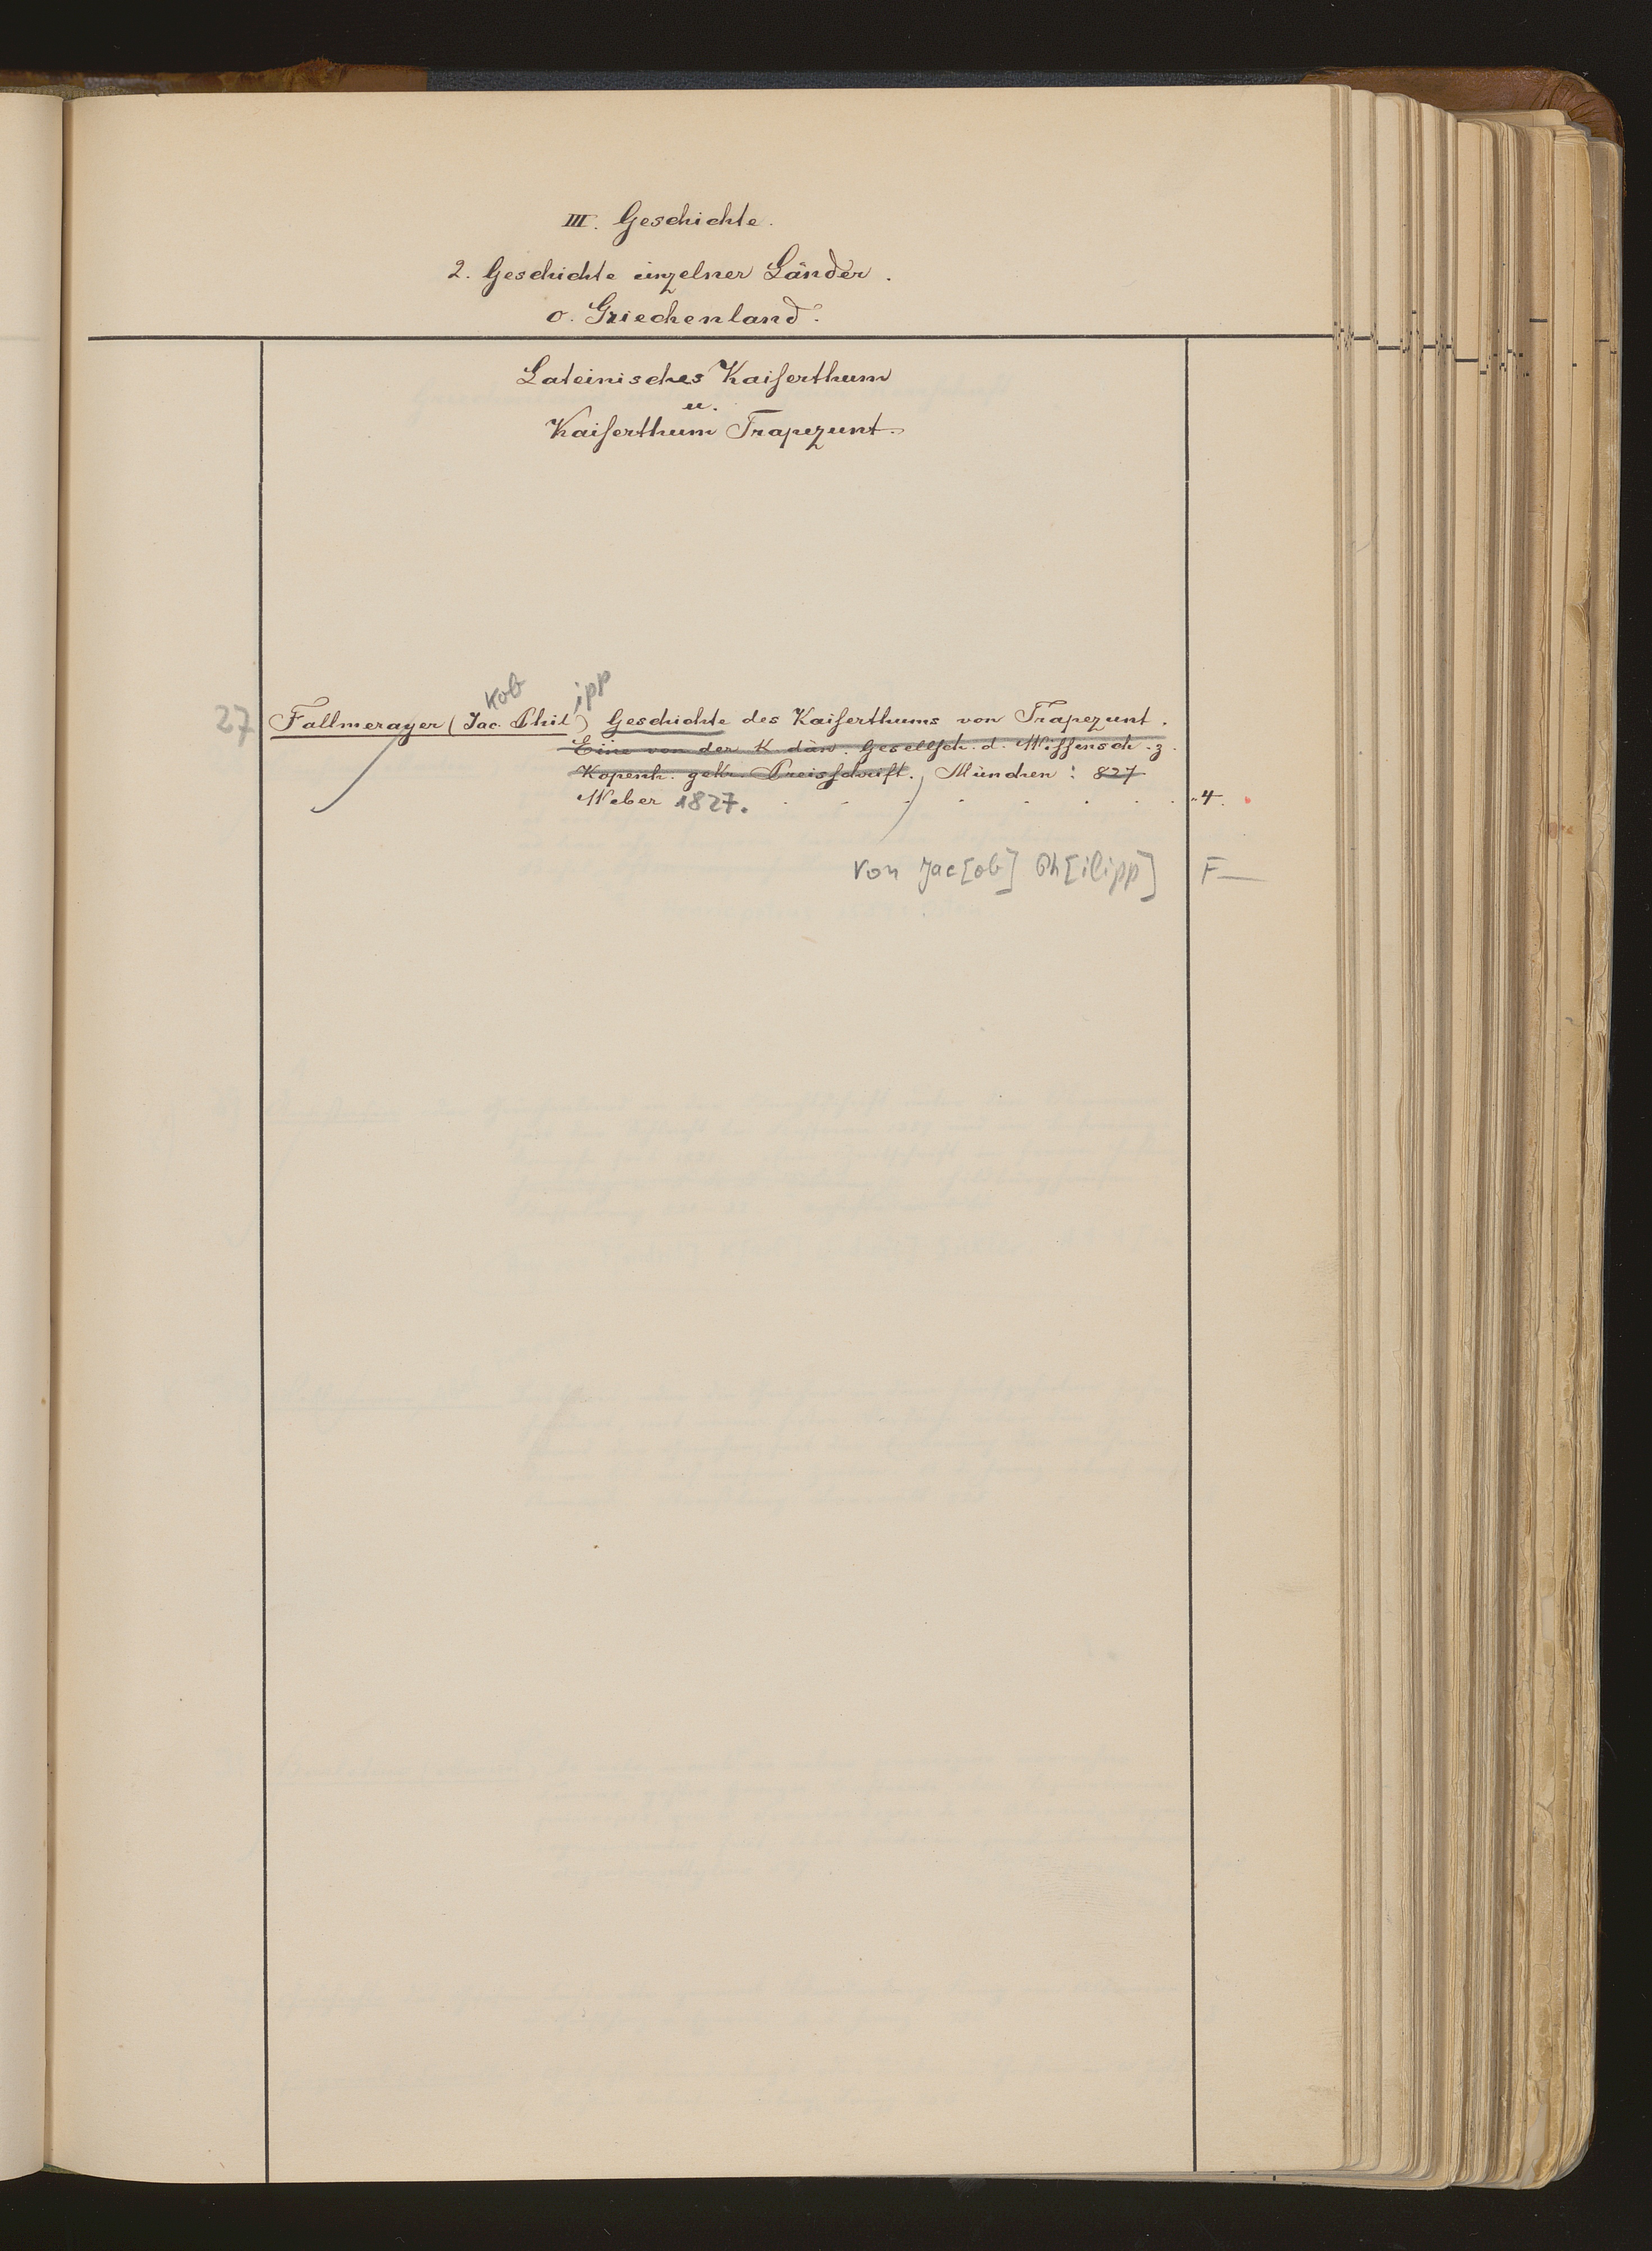 III. Geschichte.
2. Geschichte einzelner Länder.
o. Griechenland.
Lateinisches Kaiserthum
u.
Kaiserthum Trapezunt.
kob ipp
27 Fallmerayer (Jac. Phil) Geschichte des Kaiserthums von Trapezunt.
Eine von der K. dän. Gesellsch. d. Wissensch. z.
Kopenh. gekr. Preisschrift. München: 827
Weber 1827. . . . . . . . "4.
Von Jac[ob] Ph[ilipp] F—